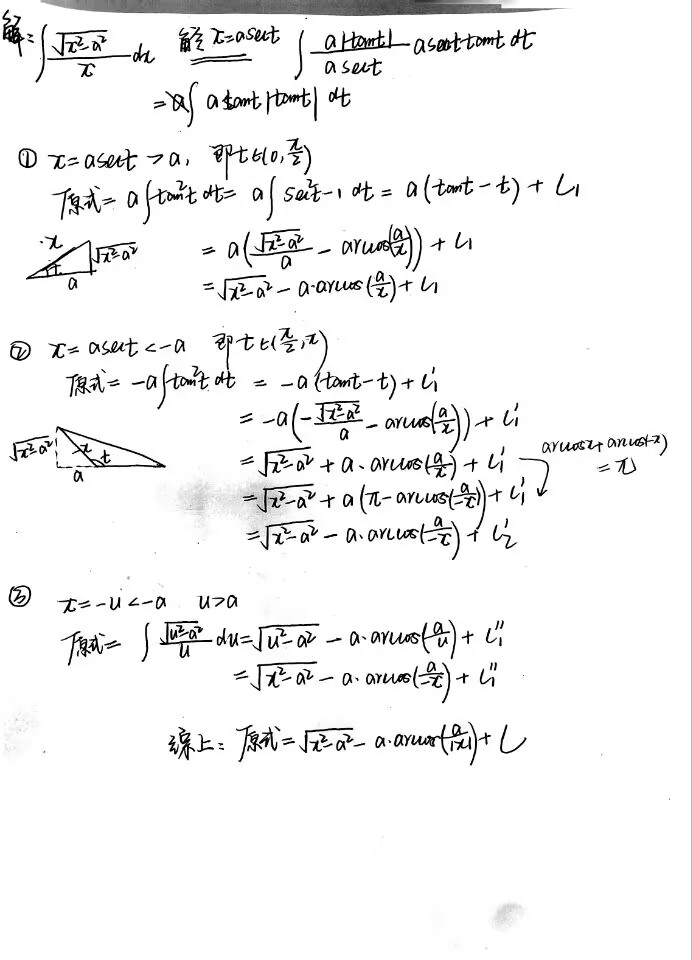 解: ∫ √(x²-a²)/x dx 令 x=asect ∫ a|tant|/(asect) asect tant dt
= ∫ a tant|tant| dt
① x=asect>a, 即t∈(0,π/2)
原式= a∫tan²t dt= a∫sec²t-1 dt = a(tant-t)+C₁
x √(x²-a²) t a
= a(√(x²-a²)/a - arccos(a/x))+C₁
=√(x²-a²) - a·arccos(a/x)+C₁
② x=asect<-a 即t∈(π/2,π)
原式= -a∫tan²t dt = -a(tant-t)+C₁'
= -a(-√(x²-a²)/a - arccos(a/x))+C₁'
√(x²-a²) -x t a
=√(x²-a²) + a·arccos(a/x)+C₁'
arccosx+arccos(-x)
=π
=√(x²-a²) + a(π-arccos(a/-x))+C₁'
=√(x²-a²) - a·arccos(a/-x)+C₂'
③ x=-u<-a u>a
原式= ∫ √(u²-a²)/u du=√(u²-a²) - a·arccos(a/u)+C₁''
=√(x²-a²) - a·arccos(a/-x)+C₁''
综上: 原式=√(x²-a²) - a·arccos(a/|x|)+C